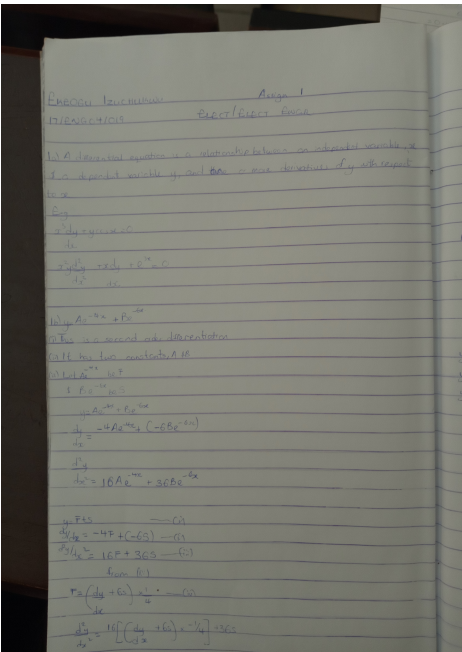 Assign 1
17/ENG04/015
ELECT/ELECT ENGR.
1a) A differential equation is a relationship between an independent variable, x
dependent variable y, and one or more derivatives of y with respect
to x
E.g.
dx
dx² dx
1b) y = Ae^-4x + Be^-6x
(i) This is a second order differentiation
(ii) It has two constants, A & B
(iii) Let Ae^-4x be F
& Be^-6x be S
y = Ae^-4x + Be^-6x
dy/dx = -4Ae^-4x + (-6Be^-6x)
d²y/dx² = 16Ae^-4x + 36Be^-6x
y = F+S —(i)
dy/dx = -4F + (-6S) —(ii)
d²y/dx² = 16F + 36S —(iii)
from (ii)
F = (dy/dx + 6S) x -1/4
d²y/dx² = 16[(dy/dx + 6S) x -1/4] + 36S